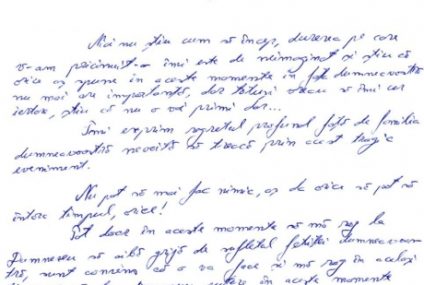 Mai nu știu cum să încep, durerea pe care
v-am pricinuit-o îmi este de neimaginat și știu că
orice aș spune în aceste momente în fața dumneavoastră
nu mai are importanță, dar totuși vreau să îmi cer
iertare, știu că nu o voi primi dar...
Îmi exprim regretul profund față de familia
dumneavoastră nevoită să treacă prin acest tragic
eveniment.
Nu pot să mai fac nimic, aș da orice să pot să
întorc timpul, orice!
Tot ce fac în aceste momente să mă rog la
Dumnezeu să aibă grijă de sufletul fetiței dumneavoas
tră, sunt convins că o va face și mă rog în același
în aceste momente